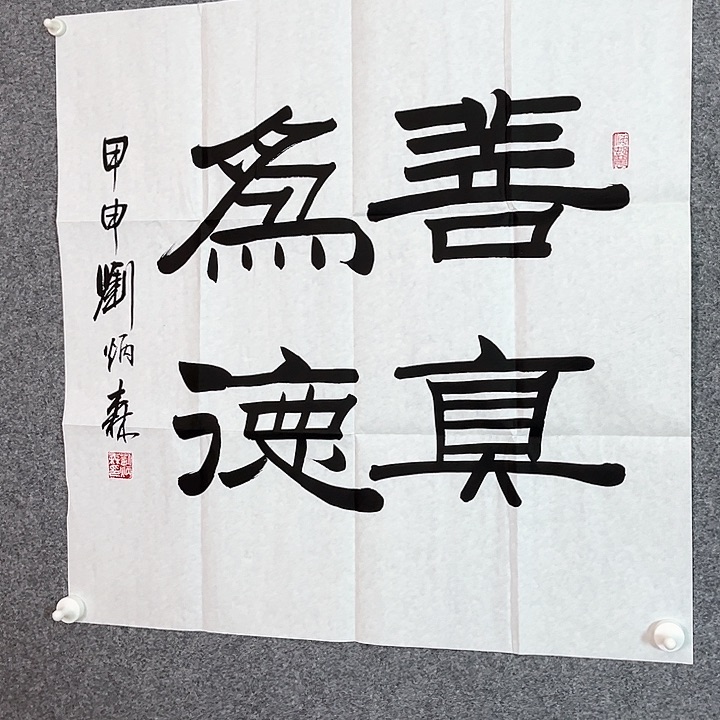 善真
為德
甲申劉炳森